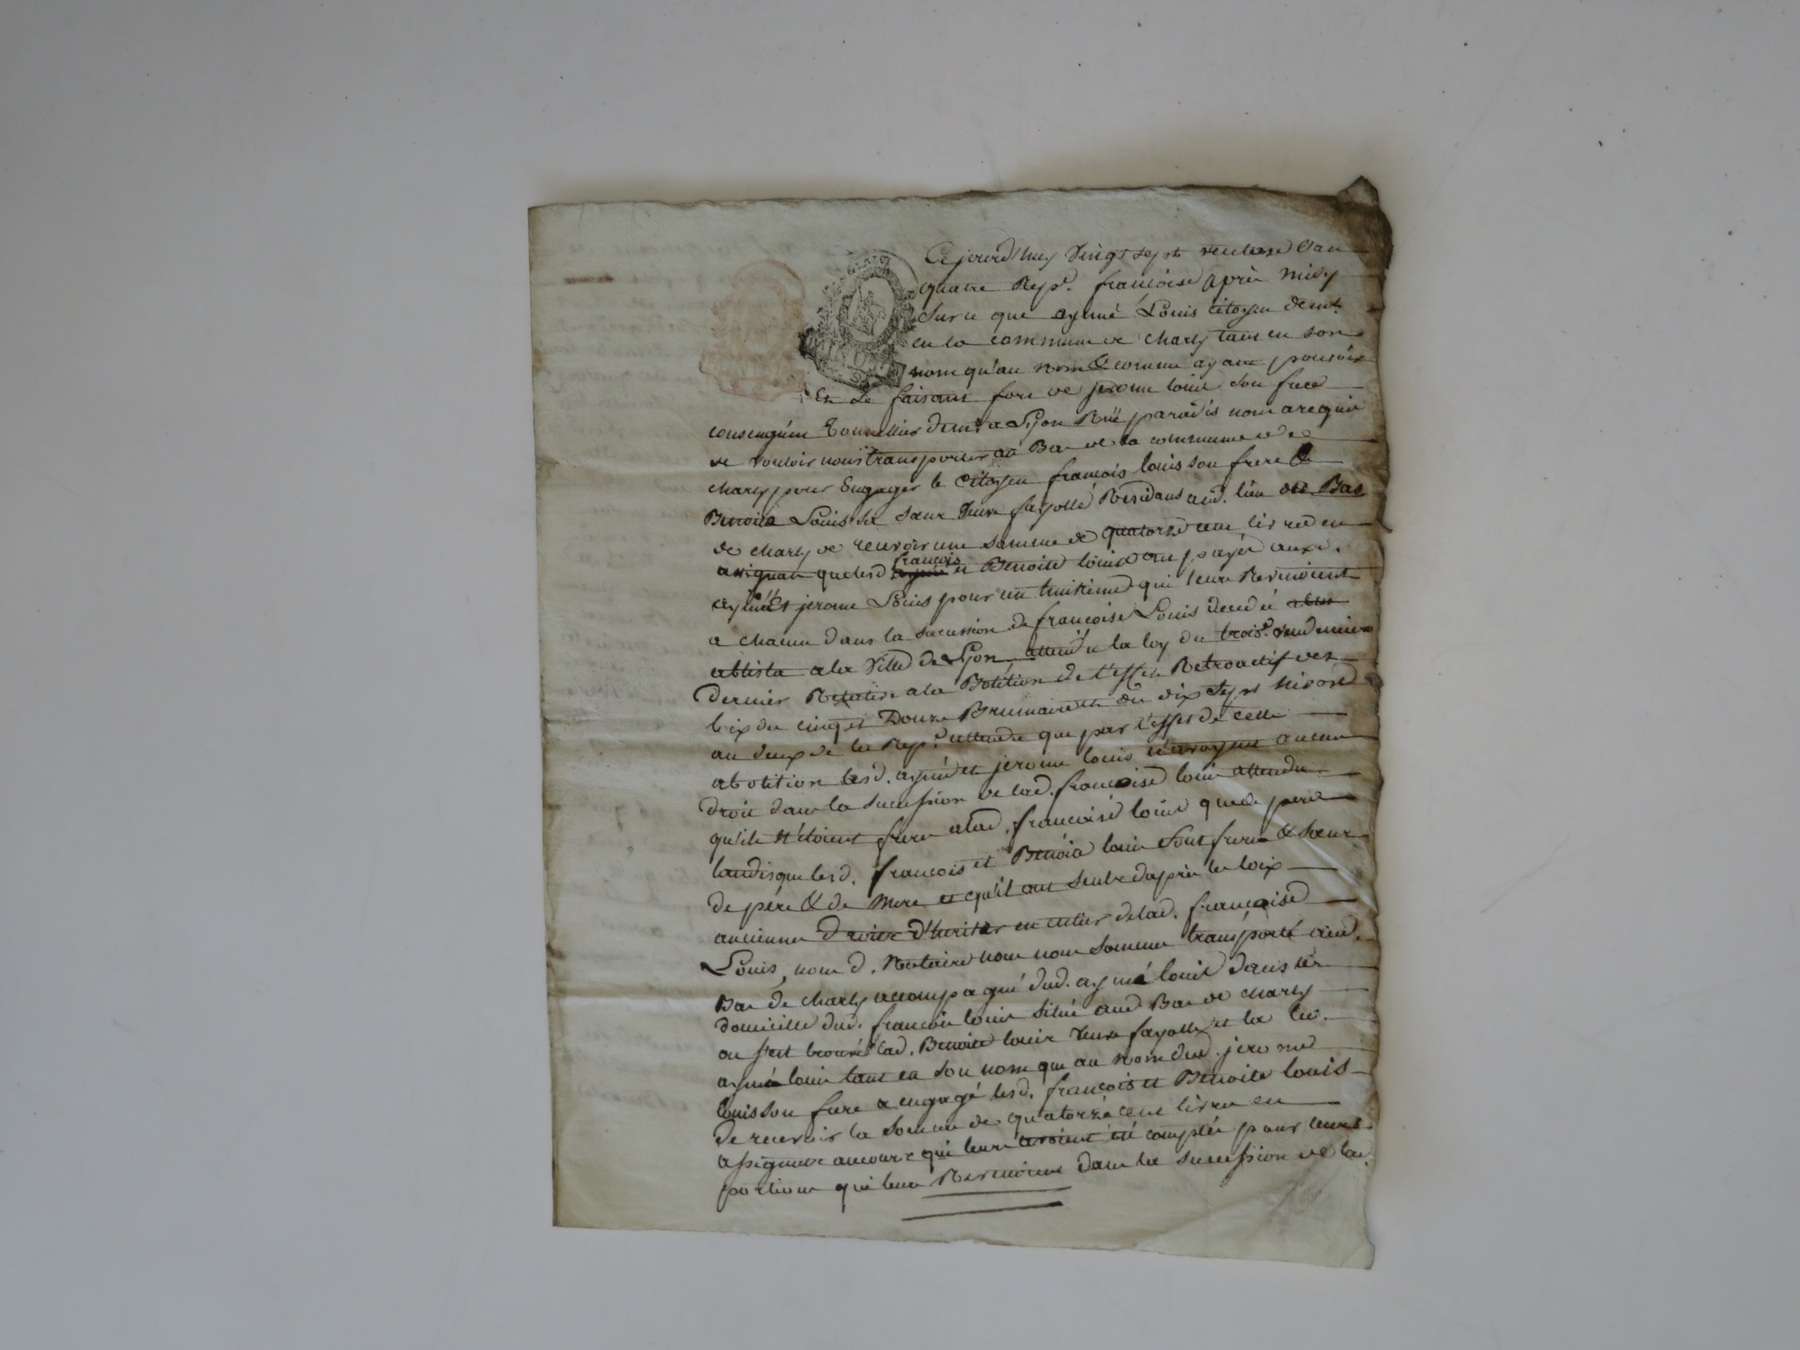 Cejourd'huy vingt sept ventose l'an
quatre Rep.e francoise après midy
sur ce que aymé Louis citoyen demt.
en la commune de charly tant en son
nom qu'au nom & comme ayant pouvoir
Et se faisant fort de jerome louis son frere
tonnellier demt. a Lyon Rüe paradis nous a requis
de vouloir nous transporter au Bas de la commune de
charly pour Engager le citoyen francois louis son frere &
Benoite Louis sa sœur veuve fayolle Residans aud. lieu du Bas
de charly de recevoir une somme de quatorze cent livres en
assignats que lesd. francois et Benoite louis ont payés auxd.
aymé Et jerome Louis pour un huitieme qui leurs Revenoient
a chacun dans la sucession de francoise Louis decedée
a la ville de Lyon attendu la loy du trois vendemiaire
dernier Relative a la Bolition de l'effet Retroactif des
loix du cinq et Douze Brumaire et du dix sept nivose
an deux de la Rep.e attendu que par l'effet de cette
abolition lesd. aymé et jerome louis n'avoyent aucun
droit dans la sucession de lad. francoise louis attendu
qu'ils n'étoient frere a lad. francoise louis que de pere
tandis que lesd. francois et Benoite louis sont frere & sœur
de père & de mere et qu'il ont seuls d'après les loix
anciennes droits d'heriter en entier de lad. francoise
Louis, nous d. Notaire nous nous sommes transporté aud.
Bas de charly accompagné dud. aymé louis dans le
domicille dud. francois louis situé aud. Bas de charly
ou s'est trouvé lad. Benoite louis veuve fayolle et la led.
aymé louis tant en son nom que au nom dud. jerome
louis son frere a engagé lesd. francois et Benoite louis
de recevoir la somme de quatorze cent livres en
assignats qui leurs avoient été comptés pour leurs
portions qui leurs Revenoient dans la sucession de lad.